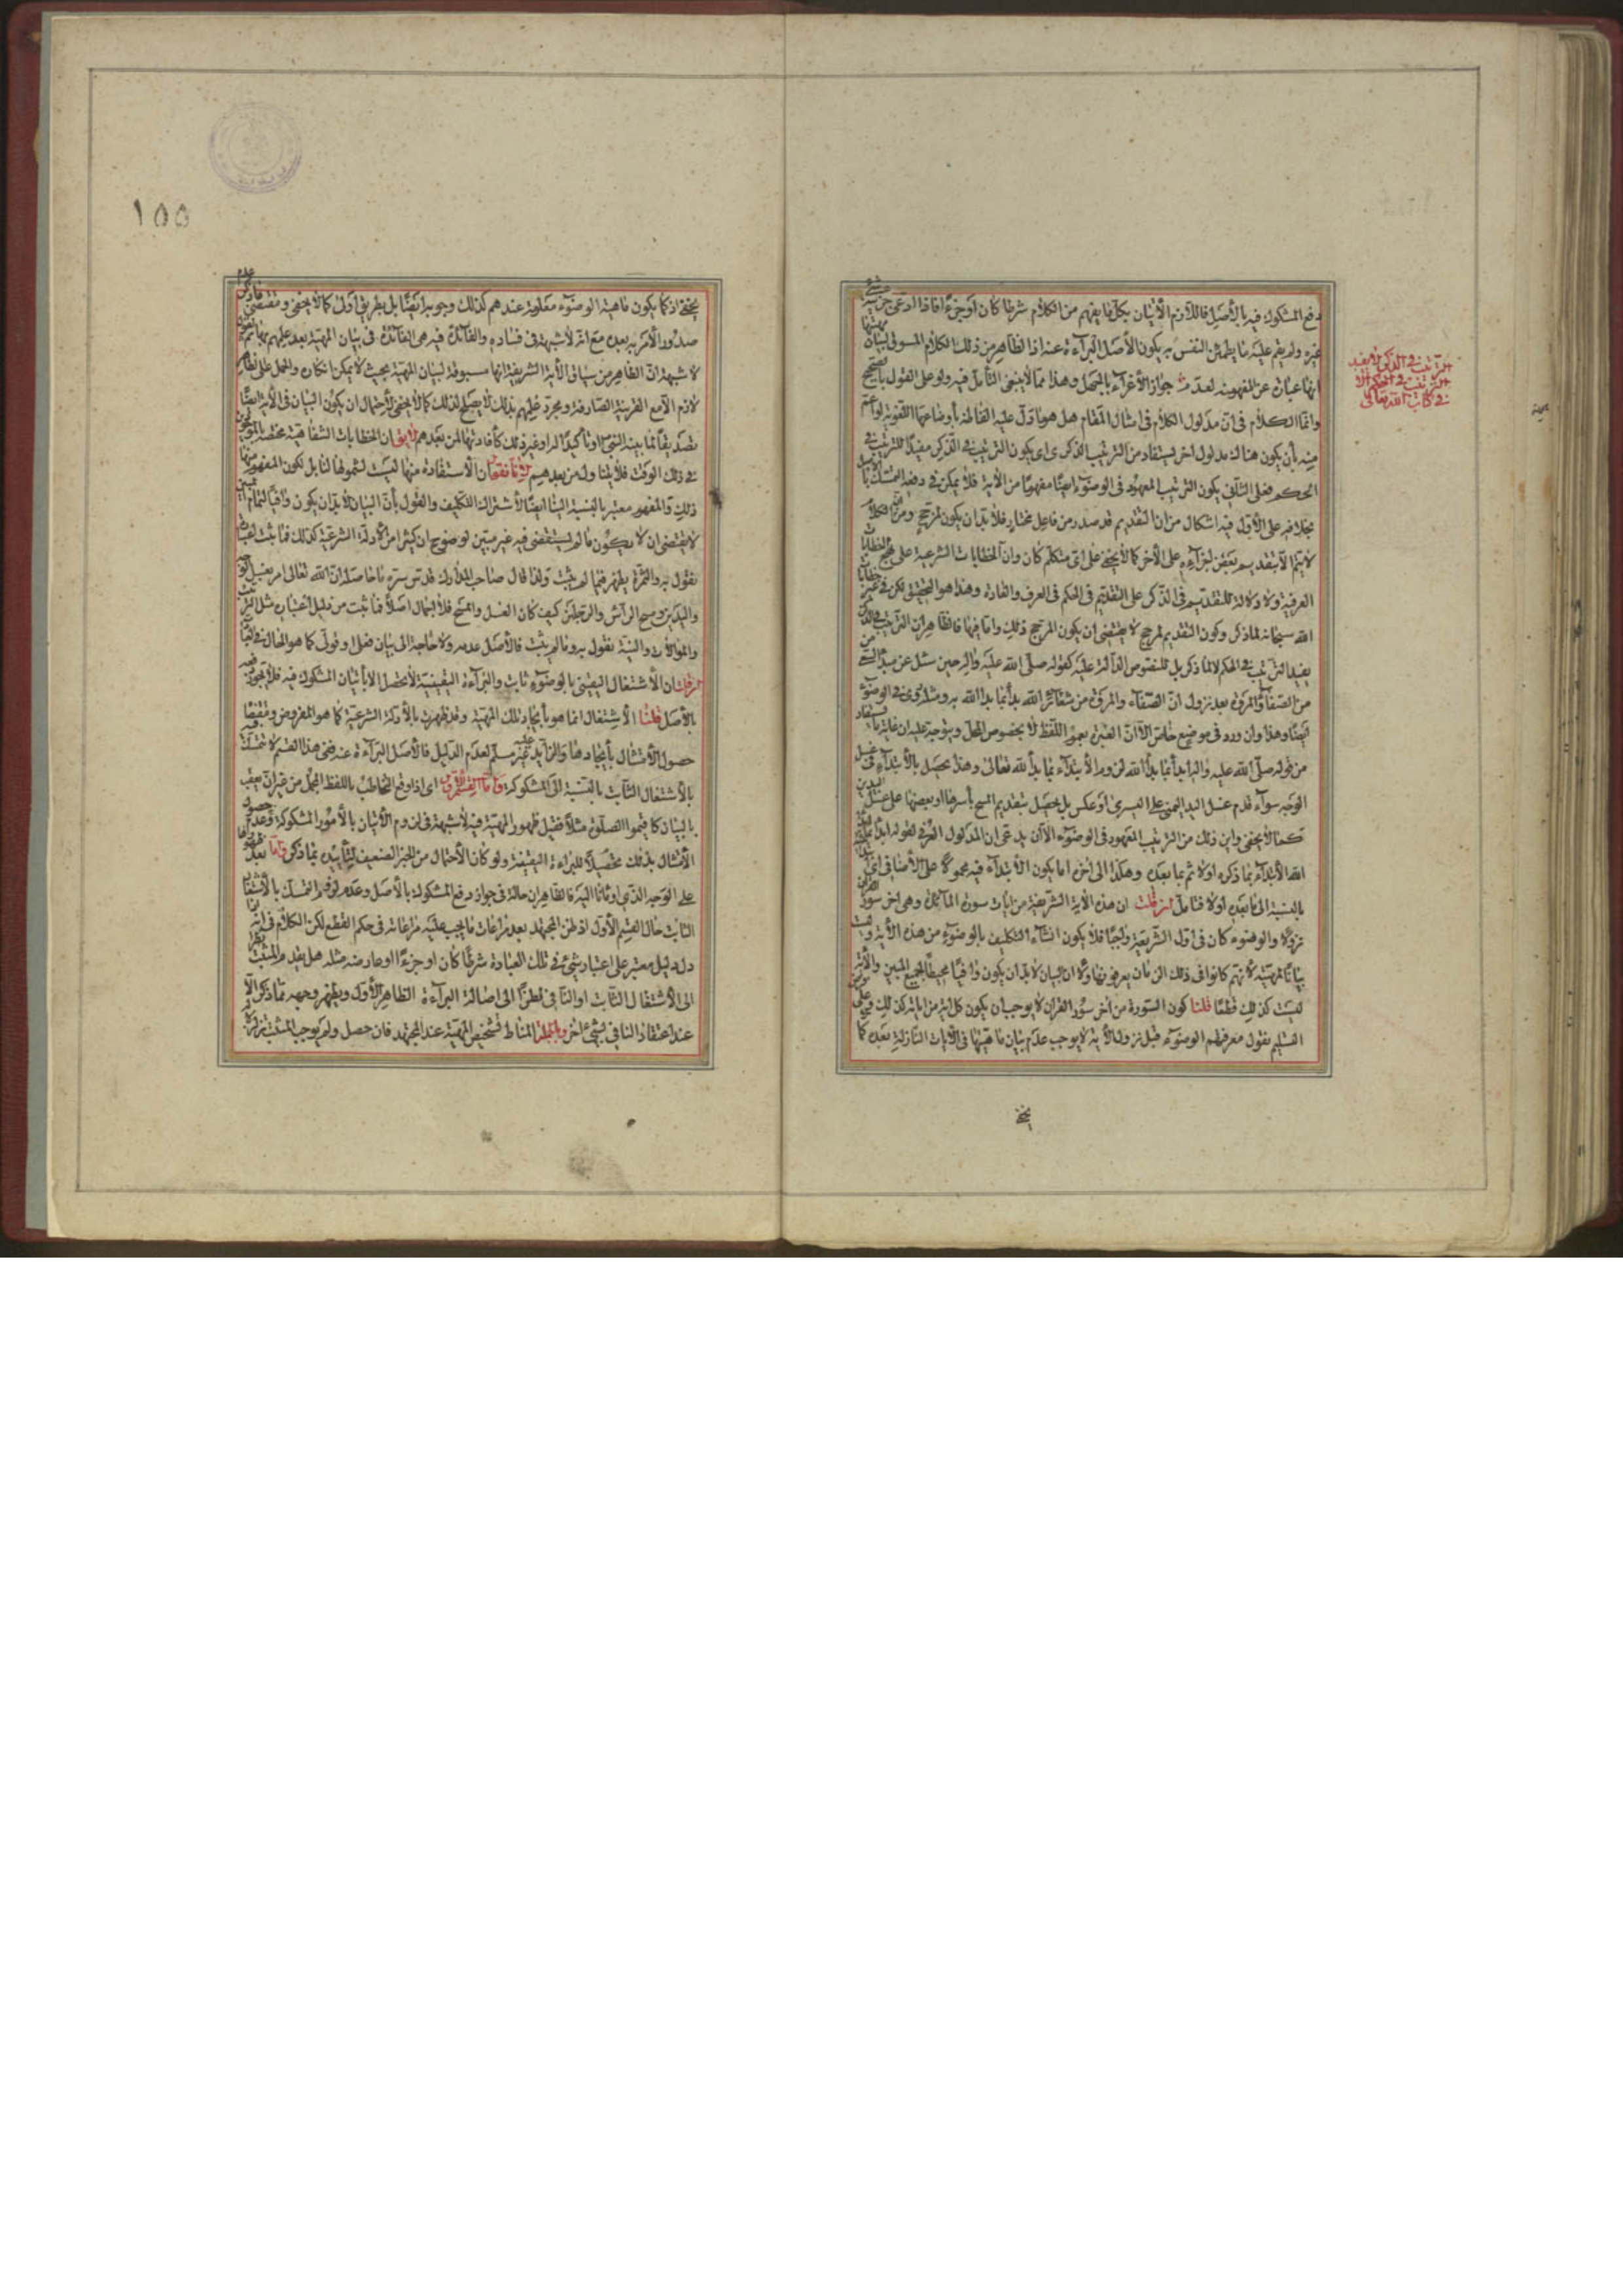 دفع المشكوك فيه بالأصل فاللازم الاتيان بكل ما يفهم من الكلام شرطا كان او جزءا فاذا ادعى جزئية شئ
غيره ولم يقم عليه ما يطمئن النفس به يكون الأصل البراءة عنه اذ الظاهر من ذلك الكلام المسوق لبيان مهيتها
انها عبارة عن المفهوم منه لعدم جواز الأغراء بالجهل وهذا مما لا ينبغى التأمل فيه ولو على القول بالصحيح
وانما الكلام فى ان مدلول الكلام فى امثال المقام هل هو ما دل عليه الفاظه بأوضاعها اللغوية او اعم
منه بأن يكون هناك مدلول اخر يستفاد من الترتيب الذكرى اى يكون الترتيب فى الذكر مفيدا للترتيب فى
الحكم فعلى الثانى يكون الترتيب المعهود فى الوضوء ايضا مفهوما من الآية فلا يمكن دفعه
بخلافه على الأول فيه اشكال من ان التقديم قد صدر من فاعل مختار فلا بد ان يكون لمرجح ومن ان الكلام
لا يتم الا بتقديم بعض اجزاءه على الآخر كما لا يخفى على اى متكلم كان وان الخطابات الشرعية على نهج الخطابات
العرفية ولا دلالة للتقديم فى الذكر على التقديم فى الحكم فى العرف والعادة وهذا هو التحقيق لكن فى غير خطابات
الله سبحانه لما ذكر وكون التقديم لمرجح لا يقتضى ان يكون المرجح ذلك واما فيها فالظاهر ان الترتيب فى الذكر
يفيد الترتيب فى الحكم لا لما ذكر بل للنصوص الدالة عليه كقوله صلى الله عليه واله حين سئل عن مبدأ السعى
من الصفا والمروة بعد نزول ان الصفا والمروة من شعائر الله بدأ بما بدأ الله به ومثله روى فى الوضوء
ايضا وهذا وان ورد فى موضع خاص الا ان العبرة بعموم اللفظ لا بخصوص المحل ويتوجه عليه ان غاية ما يستفاد
من قوله صلى الله عليه واله ابدأ بما بدأ الله لزوم الأبتداء بما بدأ الله تعالى وهذا يحصل بالأبتداء فى غسل
الوجه سواء قدم غسل اليد اليمنى على اليسرى او عكس بل يحصل بتقديم المسح بأسرها او بعضها على غسل اليدين
كما لا يخفى واين ذلك من الترتيب المعهود فى الوضوء الا ان يدعى ان المدلول العرفى لقوله ابدأ بما بدأ
الله الأبتداء بما ذكره اولا ثم بما بعده وهكذا الى اخره اما يكون الأبتداء فيه محمولا على الأضافى اى
بالنسبة الى ما بعده اولا فتأمل فان قلت ان هذه الآية الشريفة من ايات سورة المائدة وهى اخر سور القران
نزولا والوضوء كان فى اول الشريعة واجبا فلا يكون انشاء التكليف بالوضوء من هذه الآية وليست
بيانا لمهيته لأنهم كانوا فى ذلك الزمان يعرفونها ولأن البيان لا بد ان يكون وافيا محيطا لجميع المبين والآية
ليست كذلك قطعا قلنا كون السورة من اخر سور القران لا يوجب ان يكون كل اية من اياته كذلك وعلى فرض
التسليم نقول معرفتهم الوضوء قبل نزول الآية لا يوجب عدم بيان ماهيتها فى الآيات النازلة بعده كما
يخفى
الترتيب فى الذكر لا يفيد
الترتيب فى الحكم الا
فى كتاب الله تعالى
١٥٥
يخفى اذ كما يكون ماهية الوضوء معلومة عندهم كذلك وجوبه ايضا بل بطريق اولى كما لا يخفى ومقتضى ما ذكر عدم
صدور الأمر به بعده مع انه لا شبهة فى فساده والفائدة فيه هى الفائدة فى بيان المهية بعد علمهم بها ثم
لا شبهة ان الظاهر من سياق الآية الشريفة انها مسوقة لبيان المهية بحيث لا يمكن انكاره والحمل على الظاهر
لازم الا مع القرينة الصارفة ومجرد علمهم بذلك لا يصلح لذلك كما لا يخفى لأحتمال ان يكون البيان فى الآية ايضا
تصديقا لما بينه النبى او تأكيدا له او غير ذلك كأفادتها لمن بعدهم لا يق ان الخطابات الشفاهية مختصة بالموجودين
فى ذلك الوقت فلا يتناول من بعدهم لانا نقول ان الأستفادة منها ليست لشمولها لنا بل لكون المفهوم منها
ذلك والمفهوم معتبر بالنسبة الينا ايضا لأشتراك التكليف والقول بأن البيان لا بد ان يكون وافيا لتمام المبين
لا يقتضى ان لا يكون ما لم يستقصى فيه غير مبين لوضوح ان كثيرا من الأدلة الشرعية كذلك فما ثبت اعتباره
نقول به والثمرة يظهر فيما لم يثبت ولذا قال صاحب المدارك قدس سره ما حاصله ان الله تعالى امر بغسل الوجه
واليدين ومسح الرأس والرجلين كيف كان الغسل والمسح فلا اجمال اصلا فما ثبت من دليل اعتباره مثل الترتيب
والموالات والنية نقول به وما لم يثبت فالأصل عدمه ولا حاجة الى بيان فعلى او قولى كما هو الحال فى العبادات
فان قلت ان الأشتغال اليقينى بالوضوء ثابت والبراءة اليقينية لا يحصل الا بأتيان المشكوك فيه فلا يجوز نفيه
بالأصل قلنا الأشتغال انما هو بأيجاد تلك المهية وقد ظهرت بالأدلة الشرعية كما هو المفروض ومقتضاه
حصول الأمتثال بأيجادها والزايد عليه غير مسلم لعدم الدليل فالأصل البراءة عنه ففى هذا القسم لا تمسك
بالأشتغال الثابت بالنسبة الى المشكوكة واما القسم الاول اى اذا وقع التخاطب باللفظ المجمل من غير ان يعقب
بالبيان كاقيموا الصلوة مثلا فقبل ظهور المهية فيه لا شبهة فى لزوم الأتيان بالأمور المشكوكة وعدم حصول
الأمتثال بذلك تحصيلا للبراءة اليقينية ولو كان الأحتمال من الخبر الضعيف لتأييده بما ذكر واما بعد ظهورها
على الوجه الذى اومأنا اليه فالظاهر ان حاله فى جواز دفع المشكوك بالأصل وعدم لزوم التمسك بالأشتغال
الثابت حال القسم الأول اذ ظن المجتهد بعد مراعات ما يجب عليه مراعاته فى حكم القطع لكن الكلام فى انه اذا
دل دليل معتبر على اعتبار شئ فى تلك العبادة شرطا كان او جزءا او عارضه مثله هل يقدم المثبت نظرا
الى الأشتغال الثابت او النافى نظرا الى اصالة البراءة الظاهر الأول ويظهر وجهه مما ذكر الا
عند اعتقاد النافى بشئ اخر وبالجملة المناط تشخيص المهية عند المجتهد فان حصل ولم يوجب المثبت تزلزله